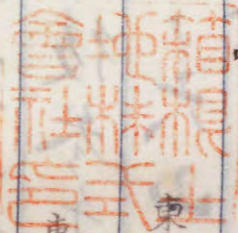 箱根土
地株式
會社印
東